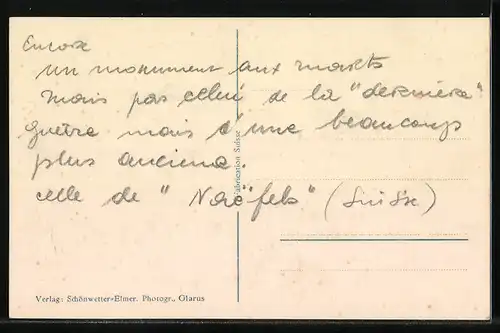 Encore
un monument aux morts
mais pas celui de la "dernière"
guerre mais d'une beaucoup
plus ancienne.
celle de "Näfels" (Suisse)
Fabrication Suisse
Verlag: Schönwetter-Elmer, Photogr., Glarus